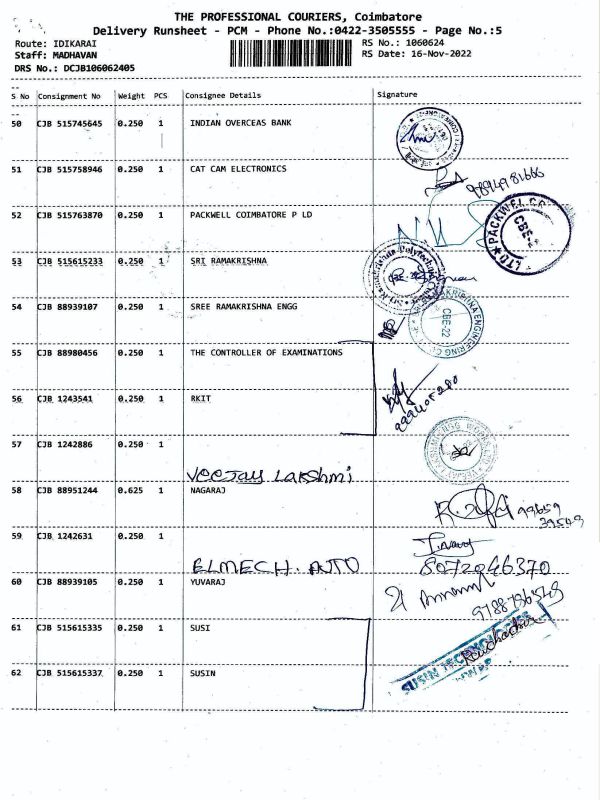 THE PROFESSIONAL COURIERS, Coimbatore
Delivery Runsheet - PCM - Phone No.:0422-3505555 - Page No.:5
Route: IDIKARAI
RS No.: 1060624
Staff: MADHAVAN
RS Date: 16-Nov-2022
DRS No.: DCJB106062405
S No Consignment No Weight PCS Consignee Details Signature
50 CJB 515745645 0.250 1 INDIAN OVERCEAS BANK
51 CJB 515758946 0.250 1 CAT CAM ELECTRONICS
52 CJB 515763870 0.250 1 PACKWELL COIMBATORE P LD
PACKWEL CBE
53 CJB 515615233 0.250 1 SRI RAMAKRISHNA
54 CJB 88939107 0.250 1 SREE RAMAKRISHNA ENGG
CBE-22
55 CJB 88980456 0.250 1 THE CONTROLLER OF EXAMINATIONS
56 CJB 1243541 0.250 1 RKIT
57 CJB 1242886 0.250 1
Veejay Lakshmi
58 CJB 88951244 0.625 1 NAGARAJ
99659
39549
59 CJB 1242631 0.250 1
ELMECH. AUTO 8072946370
60 CJB 88939105 0.250 1 YUVARAJ
9788796549
61 CJB 515615335 0.250 1 SUSI
SUSIN TECHNOLOGIES
62 CJB 515615337 0.250 1 SUSIN